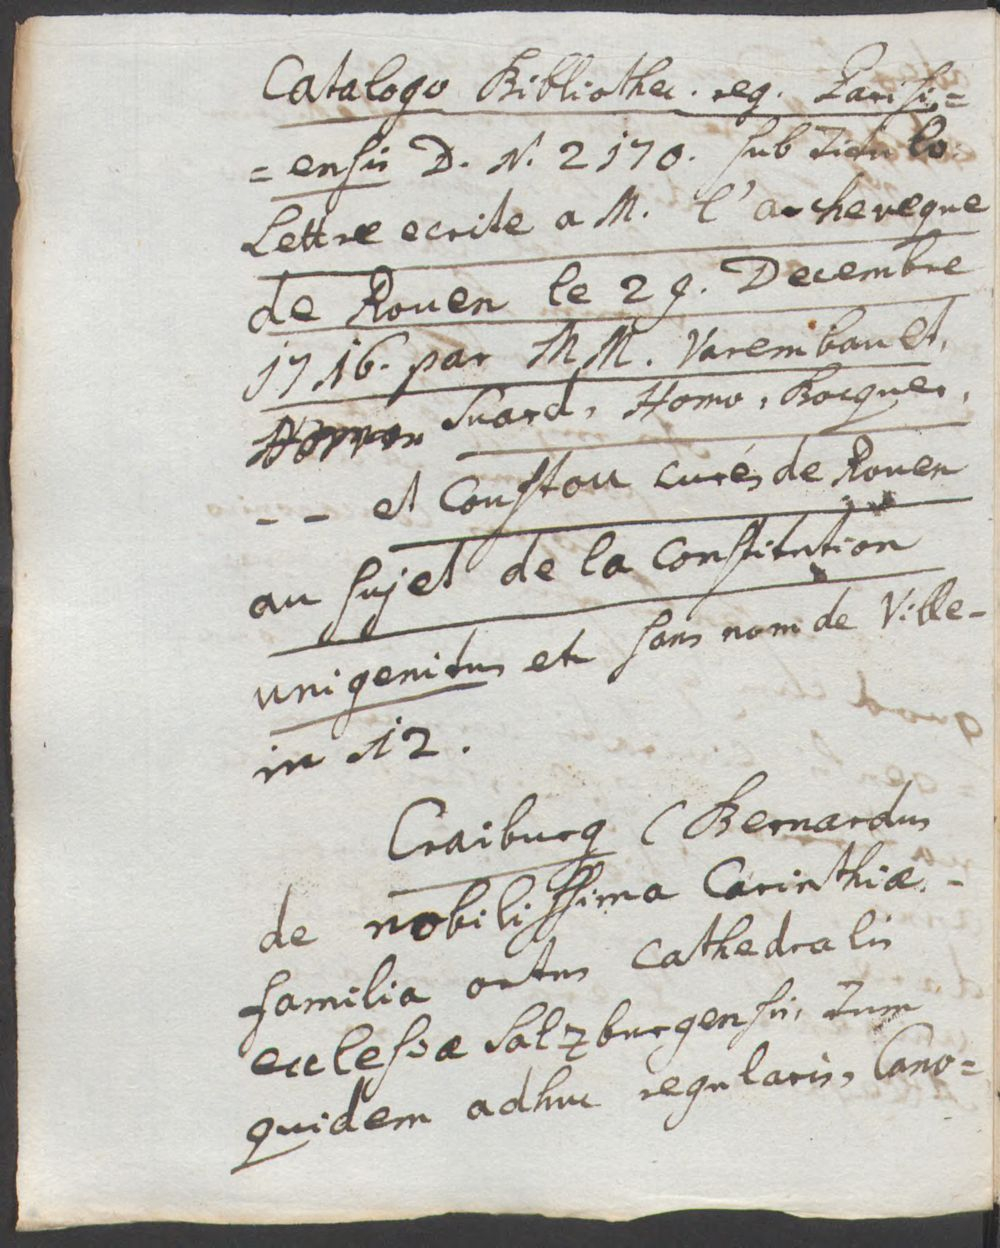 Catalogo Bibliothec. reg. Parisi=
=ensis D. N. 2170. sub titulo
Lettre ecrite a M. l'archeveque
de Rouen le 29. Decembre
1716. par MM. Varembauet,
Suard, Homo, Bocquer,
- - et Coustou curés de Rouen
au sujet de la Constitution
unigenitus etc sans nom de Ville-
in 12.
Craiburg (Bernardus
de nobilissima Carinthiæ -
familia ortus cathedralis
ecclesiæ Salzburgensis, tum
quidem adhuc regularis, Cano=